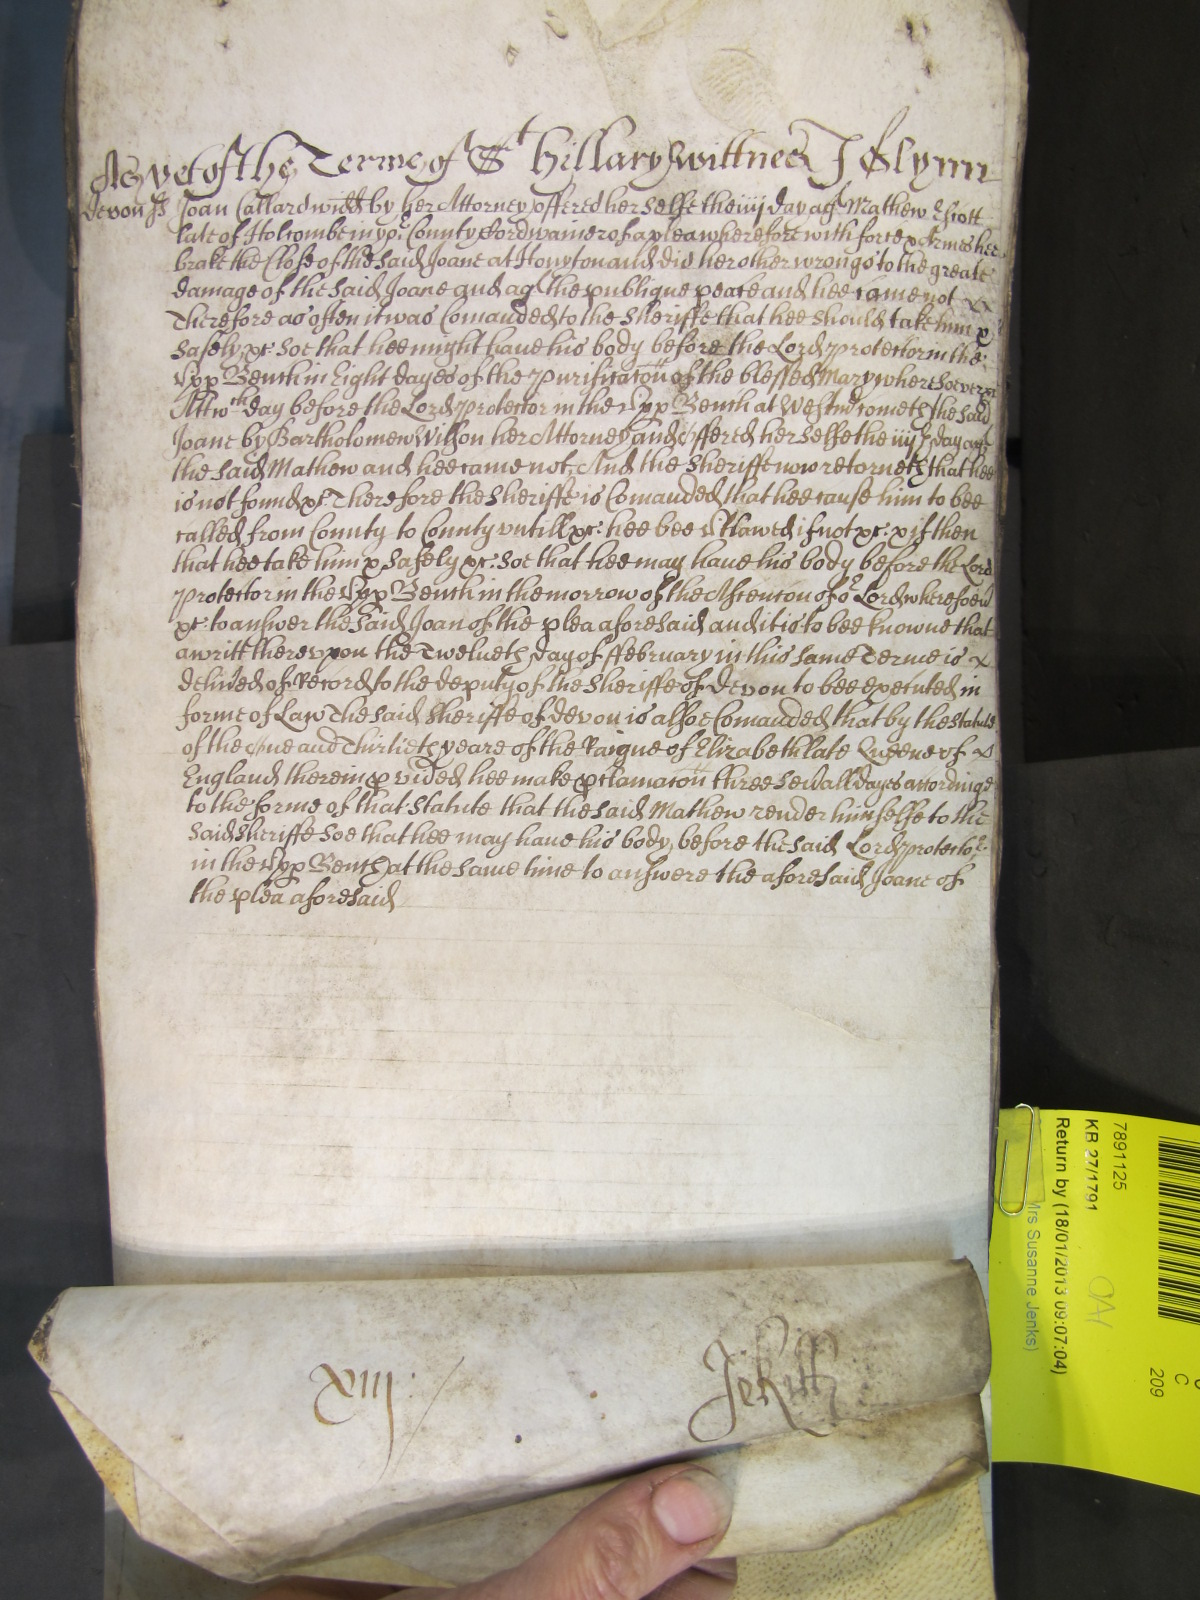 As yet of the Terme of St Hillary Wittnes J Glynn
Devon ss Joan Callard widd by her Attorney offered her selfe the iiij day agt Mathew Scott
late of Holcombe in yor County Cordwainer of a plea wherefore with force & Armes hee
brake the Close of the said Joane at Honyton and did her other wrongs to the greate
damage of the said Joane and agt the publique peace and hee came not &
Therefore as often it was Comanded to the Sheriffe that hee should take him p
safely &c Soe that hee might have his body before the Lord Protector in the
Upp Bench in Eight dayes of the Purificacon of the blessed Mary wheresoever &c
Att wch day before the Lord Protector in the Upp Bench at Westmr cometh the said
Joane by Bartholomew Willson her Attorney and offered her selfe the iiijth day agt
the said Mathew and hee came not, And the Sheriffe now retorneth that hee
is not found &c Therefore the Sheriffe is Comanded that hee cause him to bee
called from County to County untill &c: hee bee Utlawed if not &c: & if then
that hee take him & safely &c: soe that hee may have his body before the Lord
Protector in the Upp Bench in the morrow of the Ascencon of or Lord wheresoevr
&c: to answer the said Joan of the plea aforesaid and it is to bee knowne that
a writt thereupon the Twelueth day of ffebruary in this same Terme is &
delived of Record to the deputy of the Sheriffe of Devon to bee executed in
forme of Law The said Sheriffe of Devon is alsoe Comanded that by the Statute
of the One and Thirtieth yeare of the Raigne of Elizabeth late Queene of &
England therein pvided hee make pclamacon three sevall dayes accordinge
to the forme of that Statute that the said Mathew render himselfe to the
said Sheriffe soe that hee may have his body before the said Lord Protector
in the Upp Bench at the same time to answere the aforesaid Joane of
the plea aforesaid
xiij
7891125
KB 27/1791
Return by (18/01/2013 09:07:04)
Mrs Susanne Jenks)
C
209